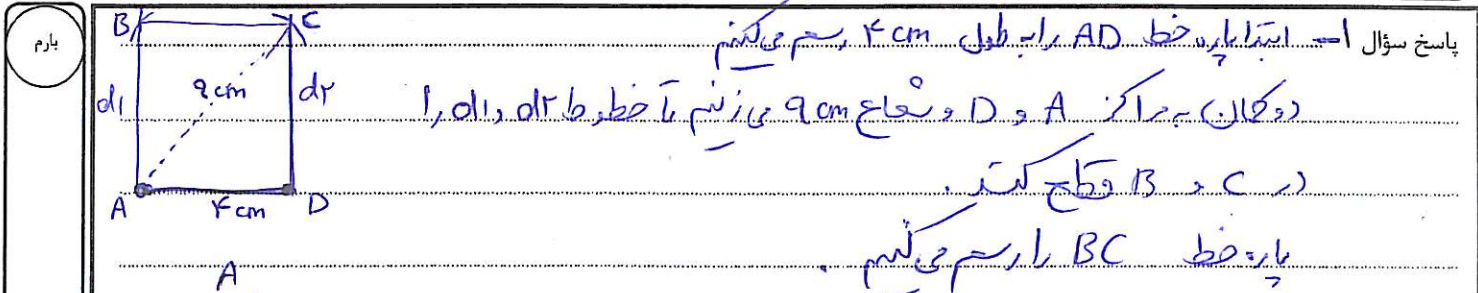 بارم
پاسخ سؤال ۱- ابتدا پاره خط AD را به طول ۴ cm رسم می‌کنیم
دو کمان به مراکز A و D و شعاع ۹ cm می‌زنیم تا خطوط d۲ و d۱ را
در C و B قطع کنند.
پاره خط BC را رسم می‌کنیم.
B C
d۱ ۹ cm d۲
A ۴ cm D
A